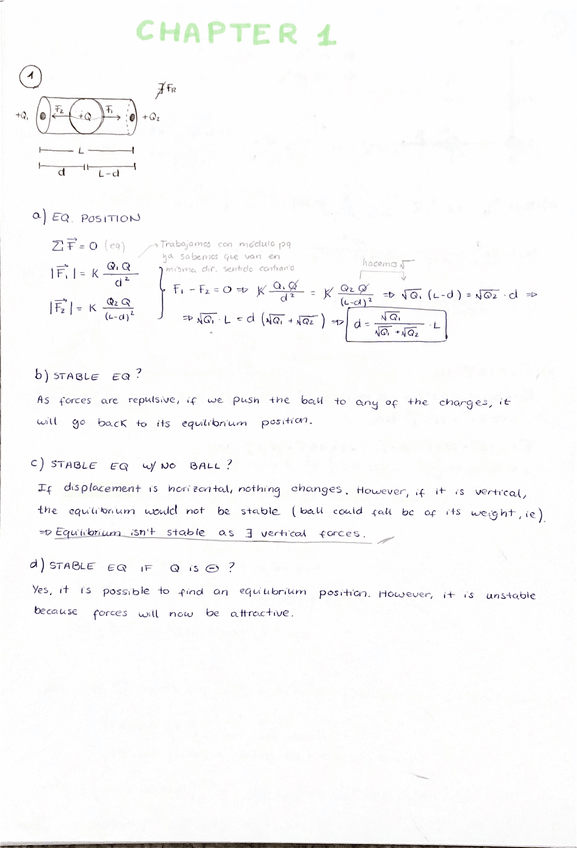 CHAPTER 1
1
∄ FR
+Q₁ F₂ +Q F₁ +Q₂
L
d L-d
a) EQ. POSITION
ΣF⃗ = 0 (eq) → Trabajamos con módulo pq
ya sabemos que van en
misma dir. sentido contrario
hacemos √
|F₁⃗| = K Q₁Q / d²
|F₂⃗| = K Q₂Q / (L-d)²
F₁ - F₂ = 0 ⇒ K Q₁Q / d² = K Q₂Q / (L-d)² ⇒ √Q₁ (L-d) = √Q₂ · d ⇒
⇒ √Q₁ · L = d (√Q₁ + √Q₂) ⇒ d = √Q₁ / (√Q₁ + √Q₂) · L
b) STABLE EQ?
As forces are repulsive, if we push the ball to any of the charges, it
will go back to its equilibrium position.
c) STABLE EQ W/ NO BALL?
If displacement is horizontal, nothing changes. However, if it is vertical,
the equilibrium would not be stable (ball could fall bc of its weight, ie).
⇒ Equilibrium isn't stable as ∃ vertical forces.
d) STABLE EQ IF Q IS ⊖ ?
Yes, it is possible to find an equilibrium position. However, it is unstable
because forces will now be attractive.